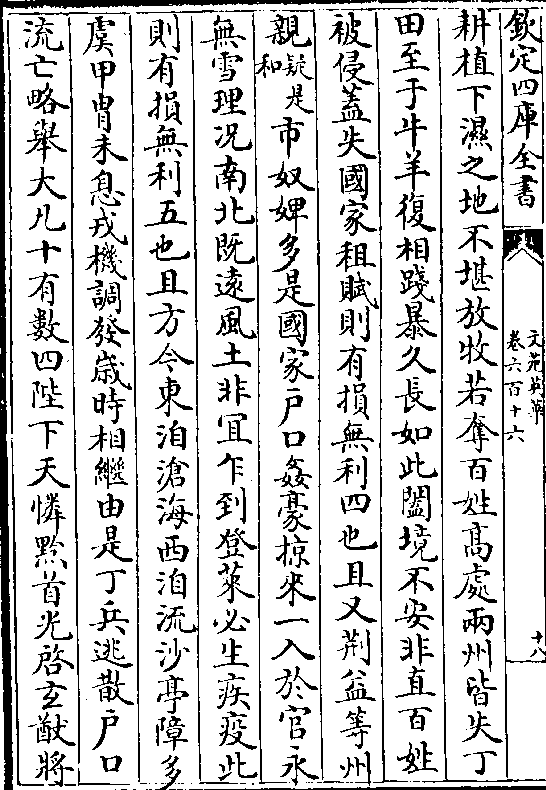 欽定四庫全書
文苑英華
卷六百十六
十八
耕植下濕之地不堪放牧若奪百姓髙處兩州皆失丁
田至于牛羊復相踐暴久長如此闔境不安非直百姓
被侵蓋失國家租賦則有損無利四也且又荆益等州
親疑是和市奴婢多是國家戸口姦豪掠來一入於官永
無雪理况南北既遠風土非冝乍到登萊必生疾疫此
則有損無利五也且方今東洎滄海西洎流沙亭障多
虞甲胄未息戎機調發嵗時相繼由是丁兵逃散戸口
流亡略舉大凡十有數四陛下天憐黔首光啓玄猷將